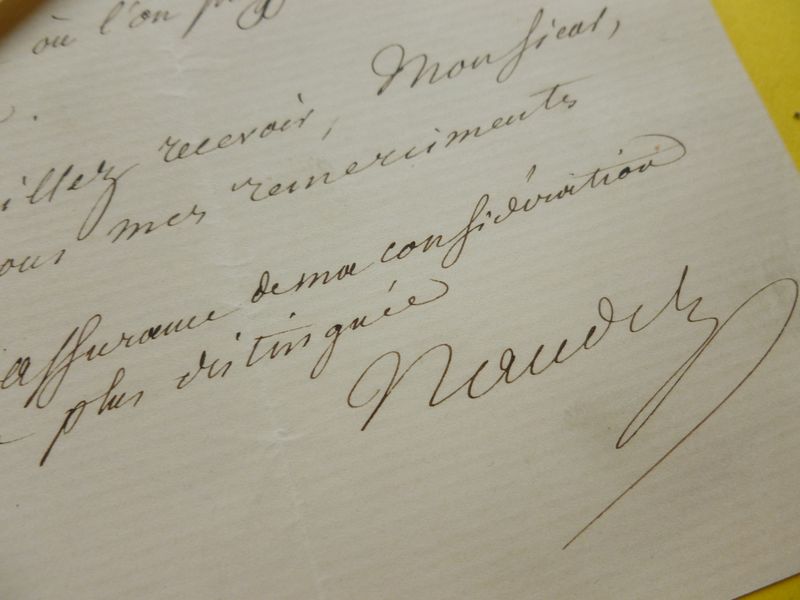 où l'on
illez recevoir, Monsieur,
ous mes remerciments
assurance de ma considération
plus distinguée
Naudet